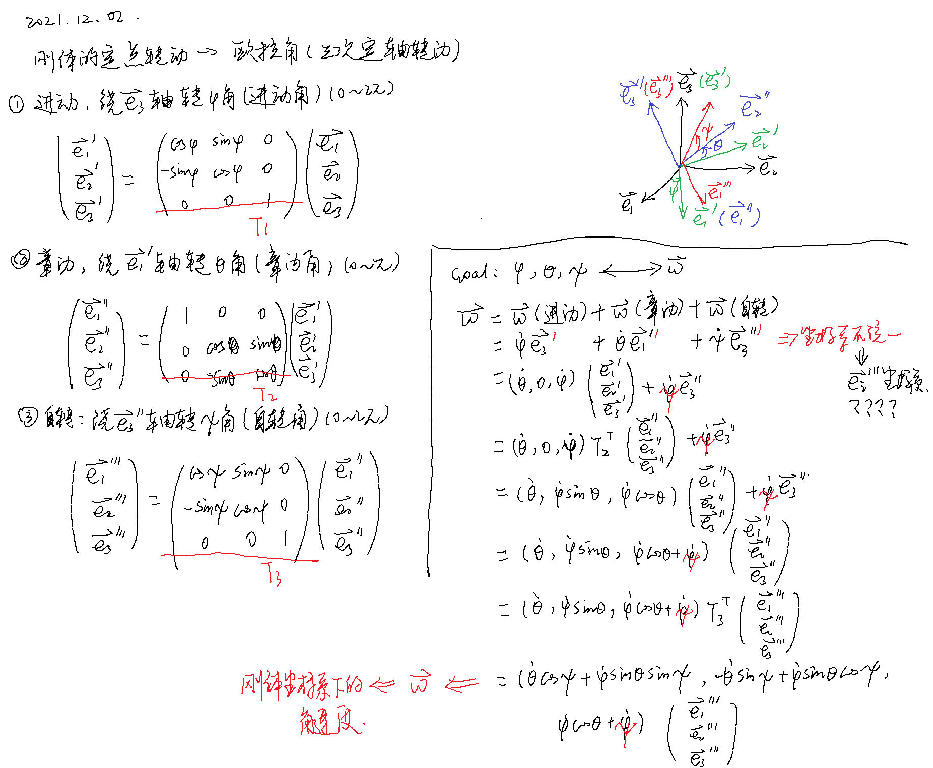 2021.12.02.
刚体的定点转动 → 欧拉角(三次定轴转动)
① 进动,绕e⃗₃轴转φ角(进动角)(0~2π)
(e⃗₁' e⃗₂' e⃗₃') = (cosφ sinφ 0 -sinφ cosφ 0 0 0 1) (e⃗₁ e⃗₂ e⃗₃)
T₁
② 章动,绕e⃗₁'轴转θ角(章动角,(0~π)
(e⃗₁'' e⃗₂'' e⃗₃'') = (1 0 0 0 cosθ sinθ 0 sinθ cosθ) (e⃗₁' e⃗₂' e⃗₃')
T₂
③ 自转:绕e⃗₃''轴转ψ角(自转角)(0~2π)
(e⃗₁''' e⃗₂''' e⃗₃''') = (cosψ sinψ 0 -sinψ cosψ 0 0 0 1) (e⃗₁'' e⃗₂'' e⃗₃'')
T₃
e⃗₃''(e⃗₃''') e⃗₃(e⃗₃')
e⃗₂''
ψ
θ
e⃗₂'
e⃗₂
e⃗₁
φ
e⃗₁'''
e⃗₁'(e⃗₁'')
Goal: φ, θ, ψ ⟷ ω⃗
ω⃗ = ω⃗(进动) + ω⃗(章动) + ω⃗(自转)
= φ̇e⃗₃' + θ̇e⃗₁'' + ψ̇e⃗₃''' ⇒坐标系不统一
e⃗₂'''坐标系
????
= (θ̇, 0, φ̇) (e⃗₁' e⃗₂' e⃗₃') + ψ̇e⃗₃''
= (θ̇, 0, φ̇) T₂ᵀ (e⃗₁'' e⃗₂'' e⃗₃'') + ψ̇e⃗₃''
= (θ̇, φ̇sinθ, φ̇cosθ) (e⃗₁'' e⃗₂'' e⃗₃'') + ψ̇e⃗₃''
= (θ̇, φ̇sinθ, φ̇cosθ+ψ̇) (e⃗₁'' e⃗₂'' e⃗₃'')
= (θ̇, φ̇sinθ, φ̇cosθ+ψ̇) T₃ᵀ (e⃗₁''' e⃗₂''' e⃗₃''')
刚体坐标系下的 ⇐ ω⃗ ⇐ = (θ̇cosψ+φ̇sinθsinψ, -θ̇sinψ+φ̇sinθcosψ,
角速度.
φ̇cosθ+ψ̇) (e⃗₁''' e⃗₂''' e⃗₃''')